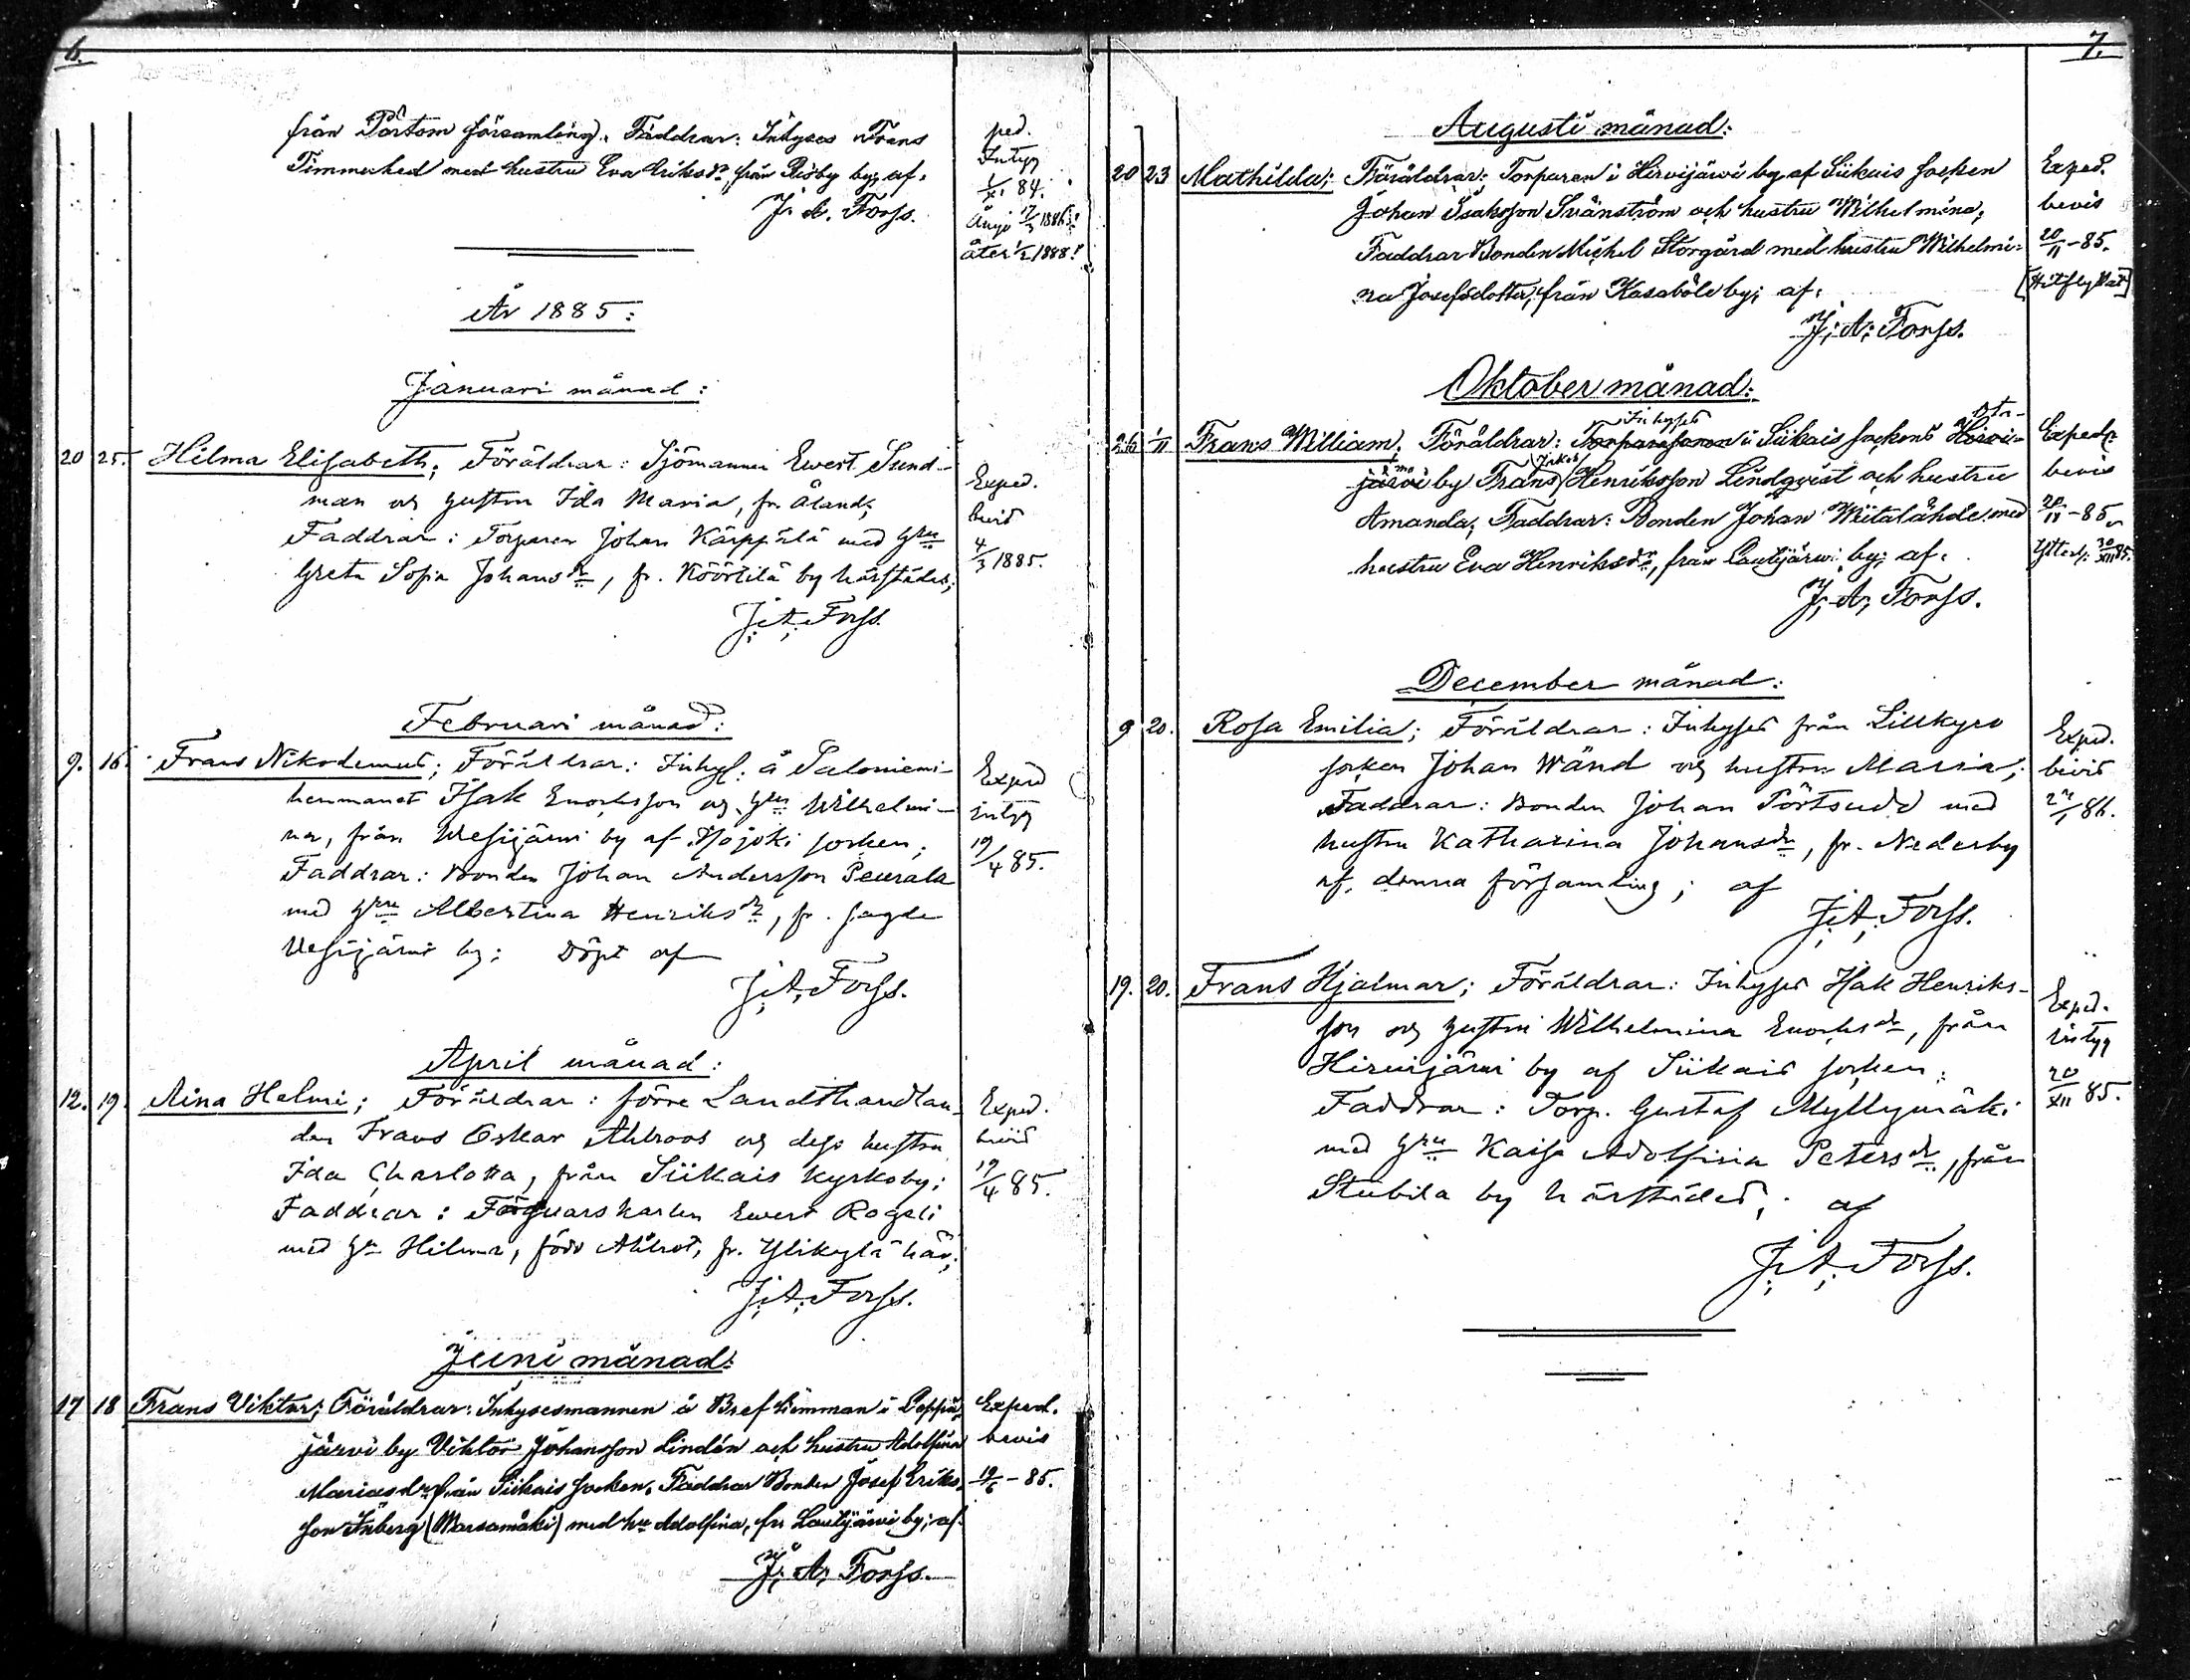 6.
från Pörtom församling. Faddrar: Inhyses Frans
Timmerhed med hustru Eva Eriksdr, från Riisby by; af.
J. A. Forss.
ped.
Intyg
1/XI 84.
Ånyo 17/3 1886!
åter 1/2 1888!
År 1885:
Januari månad:
20 25. Hilma Elisabeth; Föräldrar: Sjömannen Ewert Sund-
man och hustru Ida Maria, fr. Åland;
Faddrar: Torparen Johan Kärppälä med hru
Greta Sofia Johansdr, fr. Köörtilä by härstädes;
J. A. Forss.
Exped.
bevis
4/3 1885.
Februari månad:
9. 16. Frans Nikodemus; Föräldrar: Inhys. å Saloniemi
hemmanet Isak Enochsson och hru Wilhelmi-
na, från Wesijärvi by af Isojoki socken;
Faddrar: Bonden Johan Andersson Peurala
med hru Albertina Henriksdr, fr. sagde
Vesijärvi by; Döpt af
J. A. Forss.
Exped
intyg
19/4 85.
April månad:
12. 19. Aina Helmi; Föräldrar: förre Landthandlan-
den Frans Oskar Ahlroos och dess hustru
Ida Charlotta, från Siikais kyrkoby;
Faddrar: Färgvarskarlen Ewert Rogeli
med hru Hilma, född Ahlroos, fr. Ylikylä här;
J. A. Forss.
Exped.
bevis
19/4 85.
Juni månad:
17 18 Frans Viktor; Föräldrar: Inhysesmannen å Bref hemman i Leppä-
järvi by Viktor Johansson Lindén och hustru Adolfina
Mariasdr från Siikais socken. Faddrar Bonden Josef Eriks-
son Inberg (Marsamäki) med hu Adolfina, fr. Lautjärvi by; af.
J. A. Forss.
Exped.
bevis
19/6 - 85.
7.
Augusti månad:
20 23 Mathilda; Föräldrar: Torparen i Hirvijärvi by af Siikais socken
Johan Isaksson Svänström och hustru Wilhelmina;
Faddrar Bonden Michel Storgård med hustru Wilhelmi-
na Josefsdotter, från Kasaböle by; af.
J. A. Forss.
Exped.
bevis
20/11 - 85.
[Hitflyttat]
Oktober månad:
Inhyses Ota-
26 1/11 Frans William. Föräldrar: Torparesonen i Siikais sockens Hirvi-
mo Jakob
järvi by Frans Henriksson Lindqvist och hustru
Amanda; Faddrar: Bonden Johan Wiitalähde med
hustru Eva Henriksdr, från Lautjärwi by; af.
J. A. Forss.
Exped.
bevis
20/11 - 85.
Ytterl: 30/XII 85.
December månad:
9 20. Rosa Emilia; Föräldrar: Inhyses från Lillkyro
socken Johan Wänd och hustru Maria;
Faddrar: Bonden Johan Pörtsudd med
hustru Katharina Johansdr, fr. Nederby
af denna församling; af
J. A. Forss.
Exped.
bevis
21/1 86.
19. 20. Frans Hjalmar; Föräldrar: Inhyses Isak Henriks-
son och hustru Wilhelmina Enochsdr, från
Hirvijärvi by af Siikais socken;
Faddrar: Torp. Gustaf Myllymäki
med hru Kaisa Adolfina Petersdr, från
Stubila by härstädes; af
J. A. Forss.
Exped.
intyg
20/XII 85.